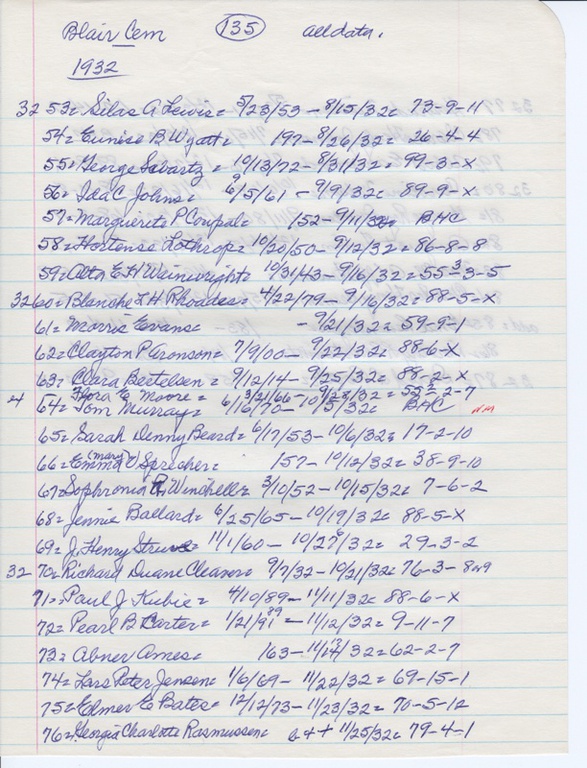 Blair Cem (135) all data.
1932
32 53= Silas A Lewis= 5/23/53 - 8/15/32= 73-9-11
54= Eunise B Wyatt= 197- 8/26/32= 26-4-4
55= George Swartz= 10/13/72 - 8/31/32= 99-3-x
56= Ida C Johns= 6/5/61 - 9/9/32= 89-9-x
57= Marguerite P Coupal= 152- 9/11/32= BHC
58= Hortense Lothrop= 10/20/50- 9/12/32= 86-8-8
59= Alta E H Wainwright= 10/31/43- 9/16/32= 55-3-5
3260= Blanche L H Rhoades= 4/22/79 - 9/16/32= 88-5-x
61= Morris Evans= - 9/21/32= 59-9-1
62= Clayton P Aronson= 7/9/00- 9/22/32= 88-6-x
63= Clara Bertelsen= 9/12/14- 9/25/32= 88-2-x
Flora E Moore= 3/21/66- 9/28/32= 2-7
64= Tom Murray= 6/16/70- 10/5/32= BHC
65= Sarah Denny Beard= 6/17/53- 10/6/32= 17-2-10
66= Emma (Mary) O Sprecher= 157- 10/12/32= 38-9-10
67= Sophronia Winchell= 3/10/52- 10/15/32= 7-6-2
68= Jennie Ballard= 6/25/65- 10/19/32= 88-5-x
69= J. Henry Struve= 11/1/60- 10/32= 29-3-2
32 70= Richard Duane Cleaver= 9/7/32- 10/21/32= 76-3-8 or 9
71= Paul J Kubie= 4/10/89- 11/11/32= 88-6-x
72= Pearl B Carter= 1/21/91 89 - 11/12/32= 9-11-7
73= Abner Ames= 163- 11/32= 62-2-7
74= Lars Peter Jensen= 1/6/69- 11/22/32= 69-15-1
75= Elmer E Bates= 12/12/73- 11/23/32= 70-5-12
76= Georgia Charlotte Rasmussen= 11/25/32= 79-4-1